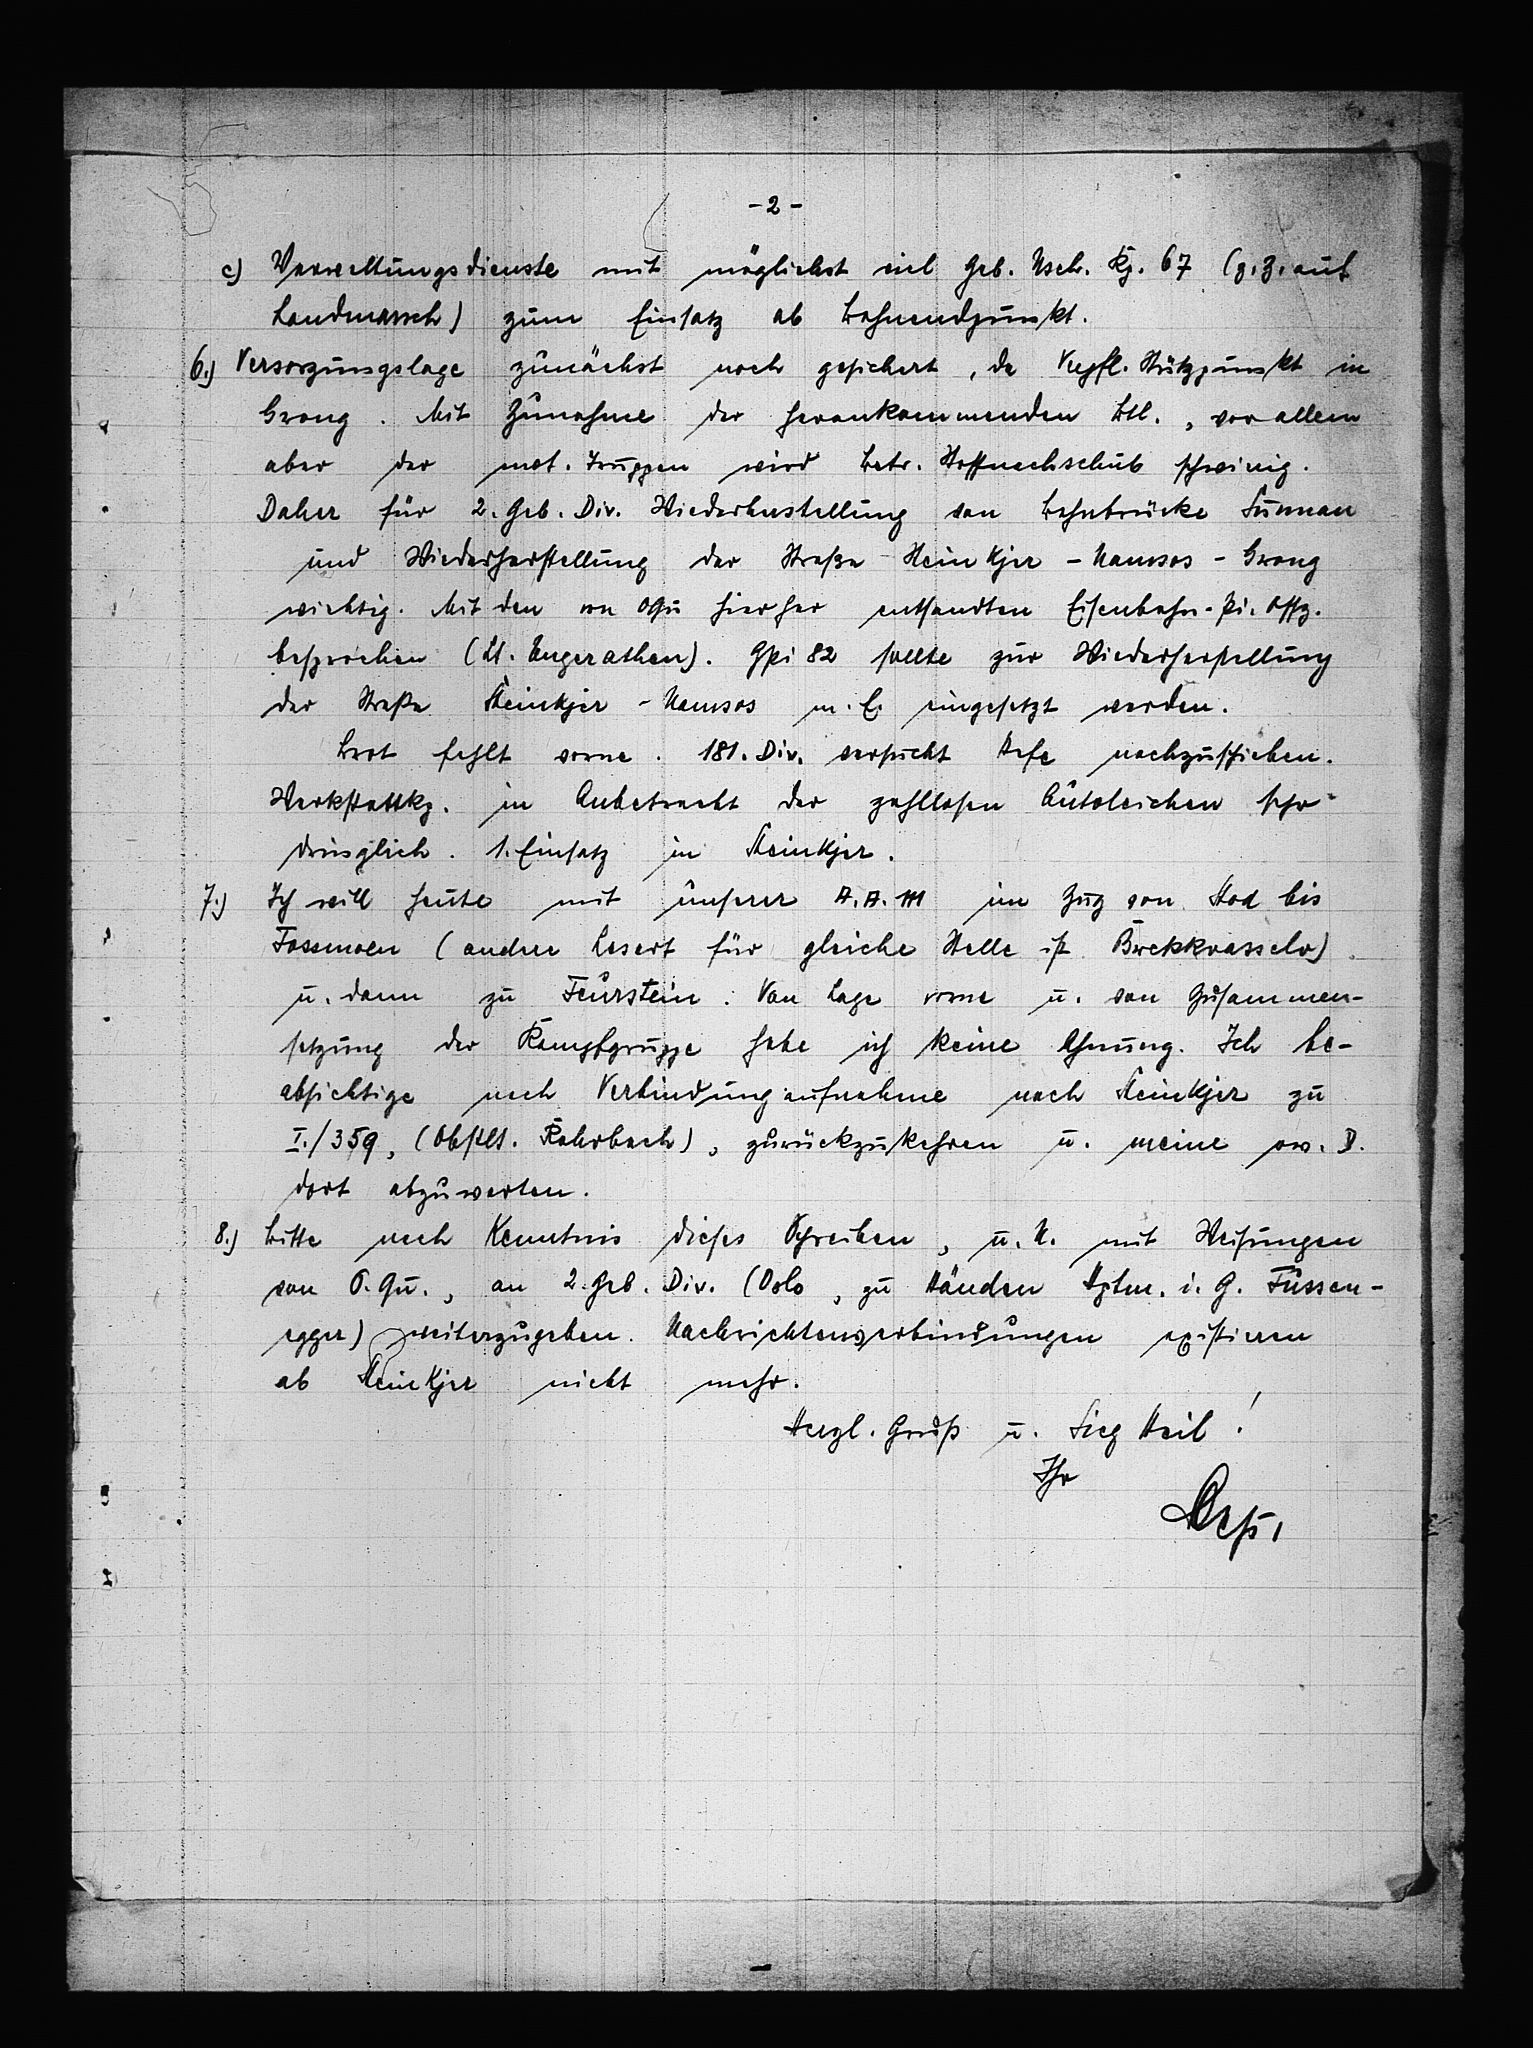 - 2 -
c) Verwaltungsdienste mit möglichst viel Geb. Nsch. Kp. 67 (z. Z. auf
Landmarsch) zum Einsatz ab Bahnendpunkt.
6.) Versorgungslage zunächst noch gesichert, da Verpfl. Stützpunkt in
Grong. Mit Zunahme der herankommenden Btl., vor allem
aber der mot. Truppen wird Betr. Stoffnachschub schwierig.
Daher für 2. Geb. Div. Wiederherstellung von Bahnbrücke Sunnan
und Wiederherstellung der Straße Steinkjer - Namsos - Grong
wichtig. Mit den von OQu hierher entsandten Eisenbahn-Pi. Offz.
besprochen (Lt. Ungerathen). Gpi 82 sollte zur Wiederherstellung
der Straße Steinkjer - Namsos m. E. eingesetzt werden.
Brot fehlt vorne. 181. Div. versucht Hefe nachzuschieben.
Werkstattkp. in Anbetracht der zahllosen Autoleichen sehr
dringlich. 1. Einsatz in Steinkjer.
7.) Ich will heute mit unserer A. A. 111 im Zug von Stod bis
Fossmoen (andere Lesart für gleiche Stelle ist Brekkvasselv)
u. dann zu Feurstein. Von Lage vorne u. von Zusammen-
setzung der Kampfgruppe habe ich keine Ahnung. Ich be-
absichtige nach Verbindungaufnahme nach Steinkjer zu
I./359, (Obstlt. Rohrbach), zurückzukehren u. meine ow. D.
dort abzuwarten.
8.) Bitte nach Kenntnis dieses Schreiben, u. U. mit Weisungen
von O. Qu., an 2. Geb. Div. (Oslo, zu Händen Hptm. i. G. Fussen-
egger) weiterzugeben. Nachrichtenverbindungen existieren
ab Steinkjer nicht mehr.
Herzl. Gruß u. Sieg Heil!
Ihr